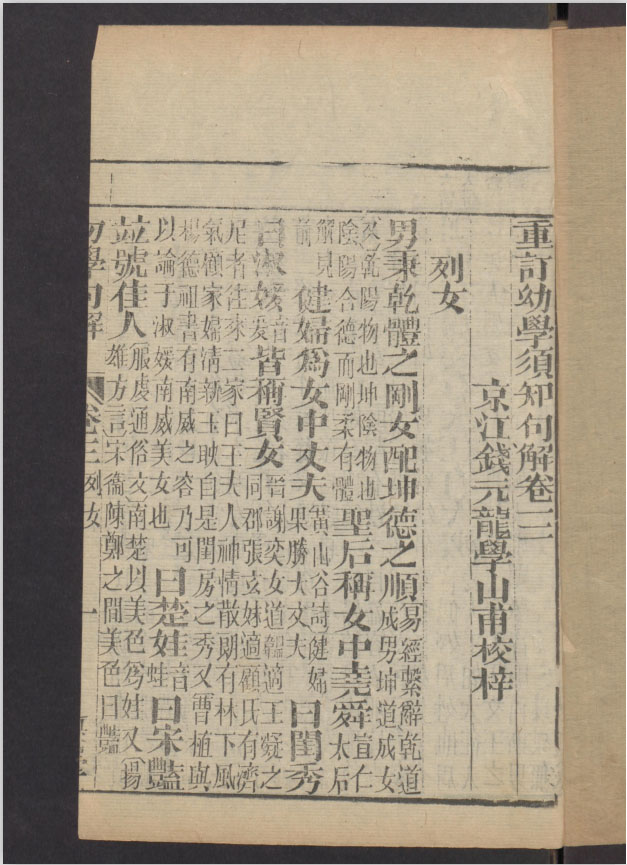 重訂幼學須知句解卷三
京江錢元龍學山甫校梓
列女
男秉乾體之剛女配坤德之順易經繫辭乾道成男坤道成女
又乾陽物也坤陰物也陰陽合德而剛柔有體聖后稱女中堯舜宣仁太后
解見前健婦爲女中丈夫黃山谷詩健婦果勝大丈夫曰閨秀
曰淑媛音爰皆稱賢女晉謝奕女道韞適王凝之同郡張玄妹適顧氏有濟
尼者往來二家曰王夫人神情散朗有林下風氣顧家婦清新玉映自是閨房之秀又曹植與
楊德祖書有南威之容乃可以論于淑媛南威美女也曰楚娃音蛙曰宋豔
竝號佳人服虔通俗文南楚以美色爲娃又揚雄方言宋衞陳鄭之間美色曰豔
幼學句解 卷三 列女 一